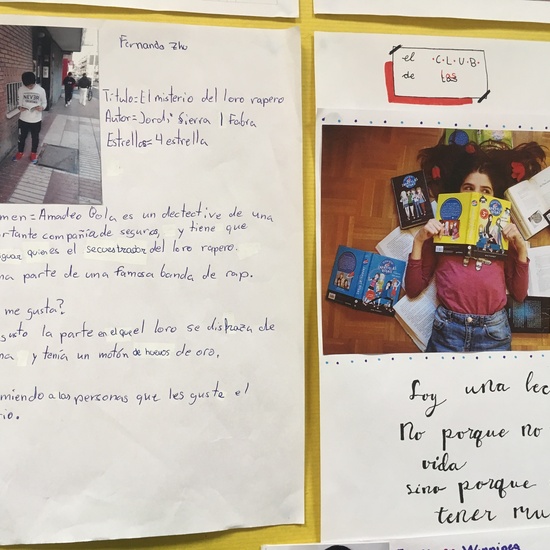 Fernando Zhu
Título=El misterio del loro rapero
Autor=Jordi Sierra I Fabra
Estrellas=4 estrella
men=Amadeo Bola es un dectective de una
rtante compañía de seguros, y tiene que
guar quien es el secuestrador del loro rapero.
ma parte de una famosa banda de rap.
me gusta?
gusto la parte en el que el loro se disfraza de
na y tenía un motón de huevos de oro.
miendo a las personas que les guste el
rio.
el ·C·L·U·B·
de las
Soy una lec
No porque no
vida
sino porque
tener mu